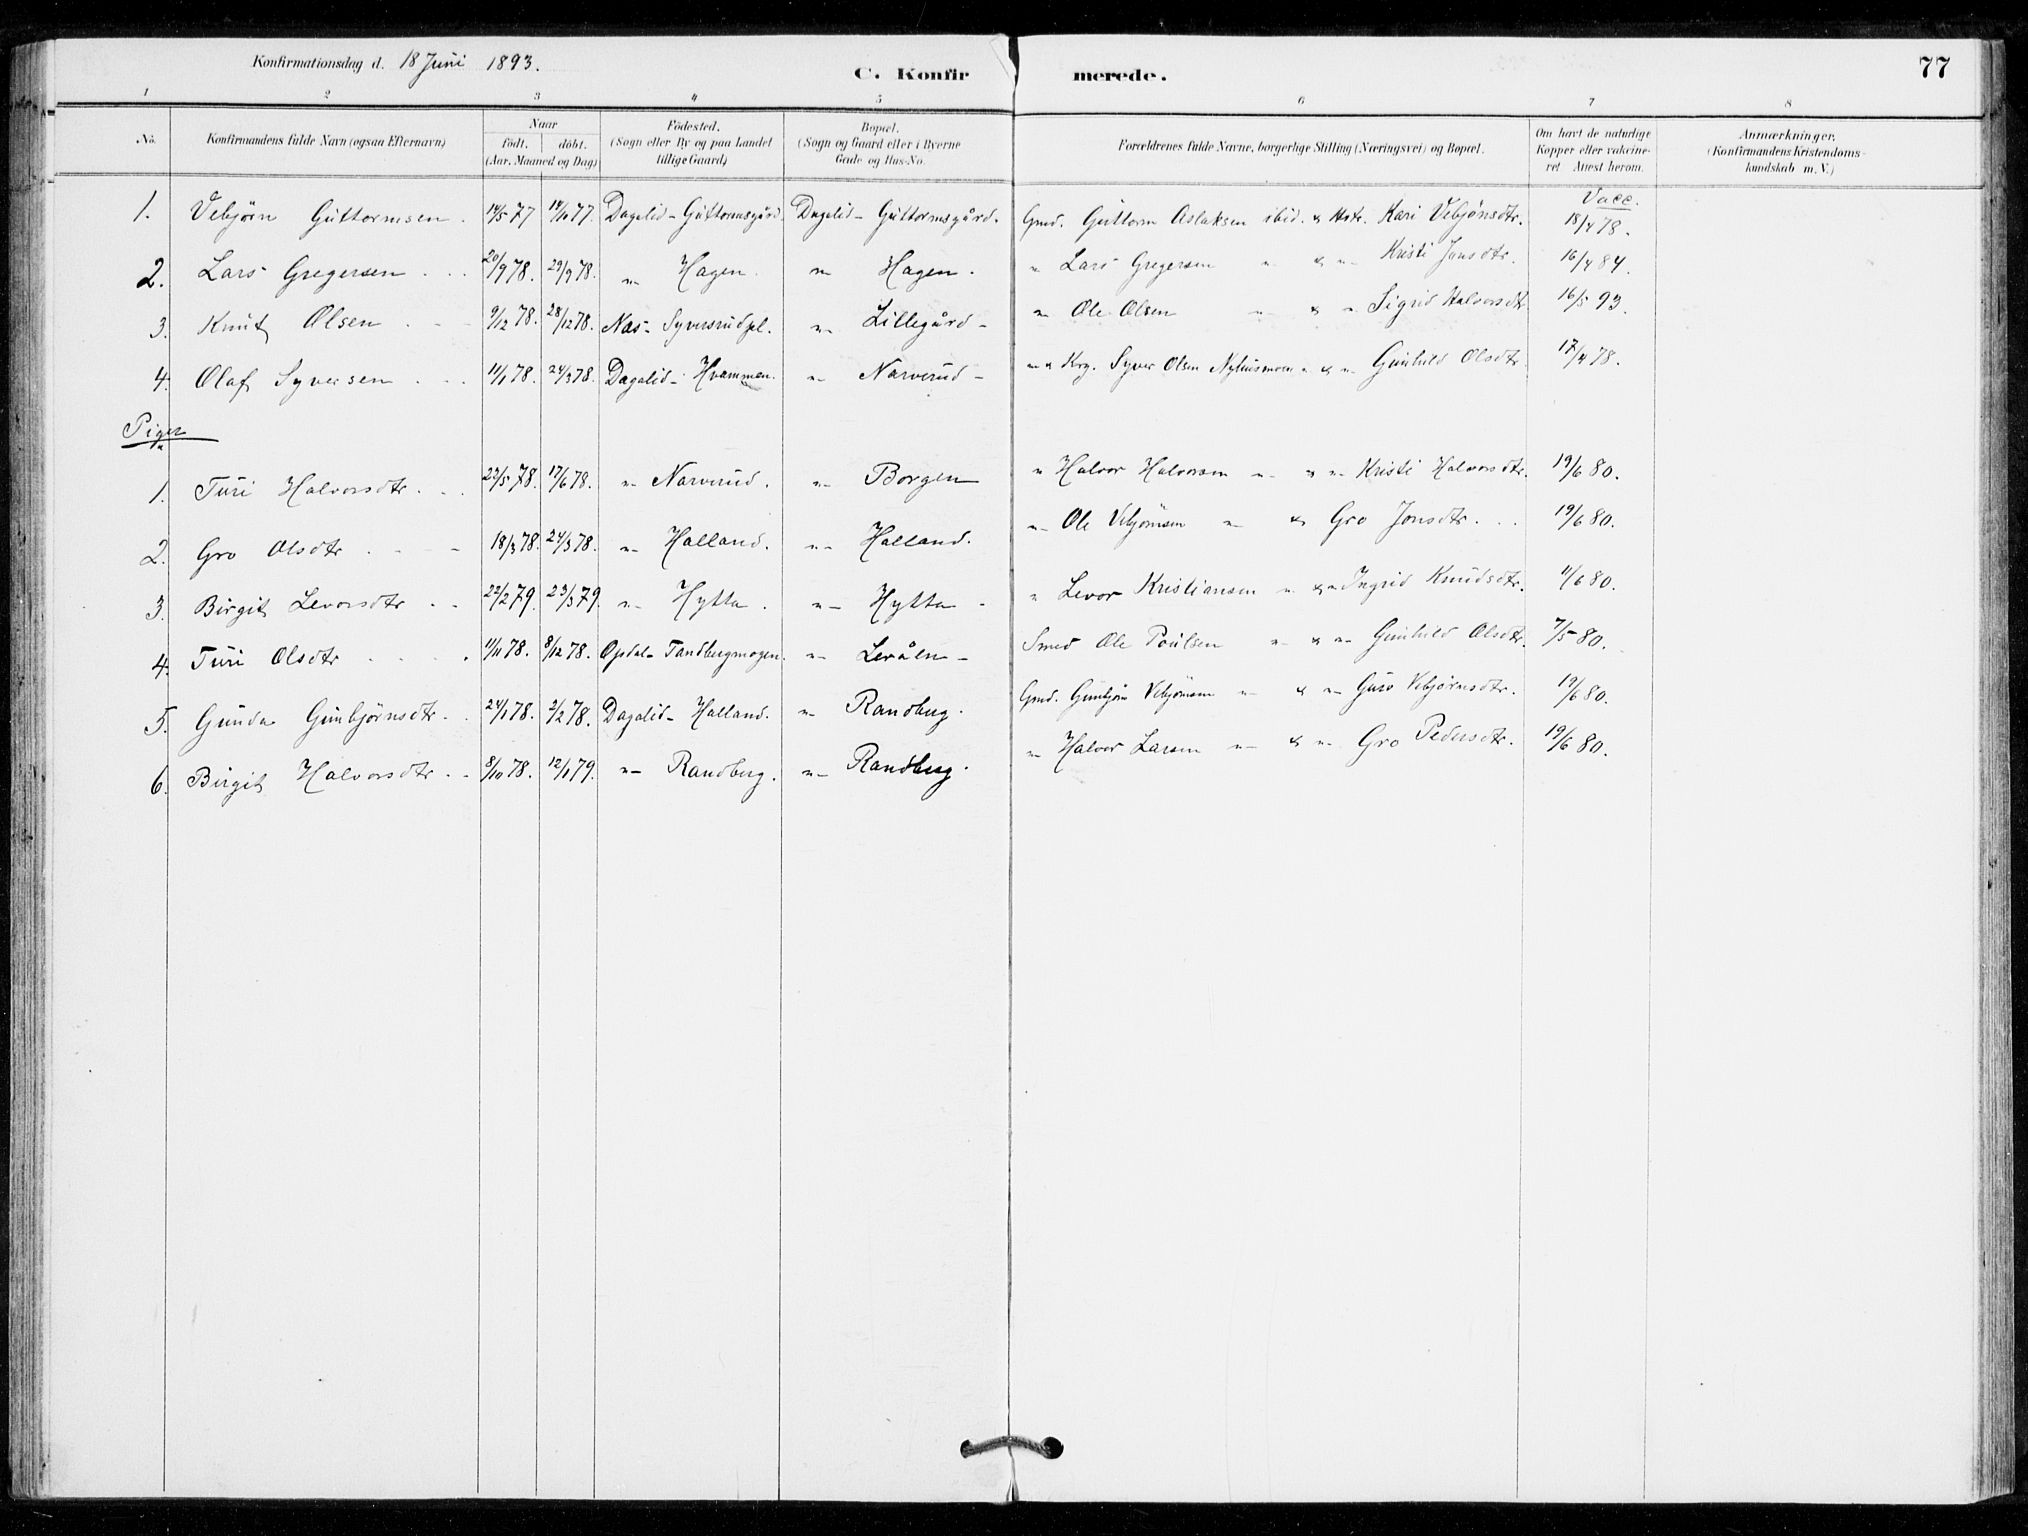 Konfirmationsdag d. 18 Juni 1893.
C. Konfir merede. 77
1 2 3 4 5 6 7 8
No. Konfirmandens fulde Navn (ogsaa Efternavn) Naar født. døbt. (Aar. Maaned og Dag) Fødested. (Sogn eller By og paa Landet tillige Gaard) Bopæl. (Sogn og Gaard eller i Byerne Gade og Hus-No. Forældrenes fulde Navne, borgerlige Stilling (Næringsvei) og Bopæl. Om havt de naturlige Kopper eller vakcineret Attest herom. Anmærkninger. (Konfirmandens Kristendomskundskab m. V.)
Vacc.
1. Vebjørn Guttormsen. 14/5 77 14/10 77. Dagalid - Guttormsgård Dagalid - Guttormsgård. Gmd. Guttorm Aslaksen ibid. & Hstr. Kari Vebjönsdtr. 18/4 78.
2. Lars Gregersen . . . 20/9 78. 29/9 78. " Hagen. " Hagen. " Lars Gregersen " & " Kristi Jonsdtr. 16/4 84.
3. Knut Olsen . - 9/12 78. 28/12 78. Næs - Syversrudpl. " Lillegård - " Ole Olsen " & " Sigrid Halvorsdtr. 16/5 93.
4. Olaf Syversen . . . 11/1 78. 24/3 78. Dagalid - Hvammen. " Narverud - " & Krg. Syver Olsen Nyhusmoen " & " Gunhild Olsdtr. 17/4 78.
Piger
1. Turi Halvorsdtr. . . 22/5 78. 17/6 78. " Narverud. " Borgen " Halvor Halvorsen " & " Kristi Halvorsdtr. 19/6 80.
2. Gro Olsdtr . - - 18/3 78. 24/3 78. " Halland. " Halland. " Ole Vebjörnsen " & Gro Jonsdtr. . . 19/6 80.
3. Birgit Levorsdtr . . 22/2 79. 23/3 79. " Hytta. " Hytta - " Levor Kristiansen " & " Ingrid Knudsdtr. 11/6 80.
4. Turi Olsdtr . . . . 11/11 78. 8/12 78. Opdal - Tandbergmogen. " Levålen - Smed Ole Poulsen " & " Gunhild Olsdtr. 7/5 80.
5. Gunda Gunbjørnsdtr. . 24/1 78. 2/2 78. Dagalid - Halland. " Randberg. Gmd. Gunbjørn Vebjörnsen " & " Guro Vebjørnsdtr. 19/6 80.
6. Birgit Halvorsdtr. . 8/10 78. 12/1 79. " Randberg. " Randberg. " Halvor Larsen " & " Gro Pedersdtr. 19/6 80.